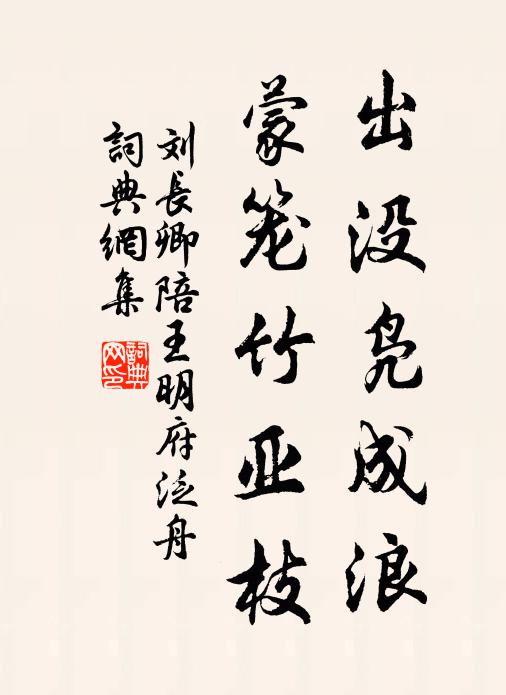 出没凫成浪
蒙笼竹亚枝
刘長卿陪王明府泛舟
詞典網集
詞典
网印